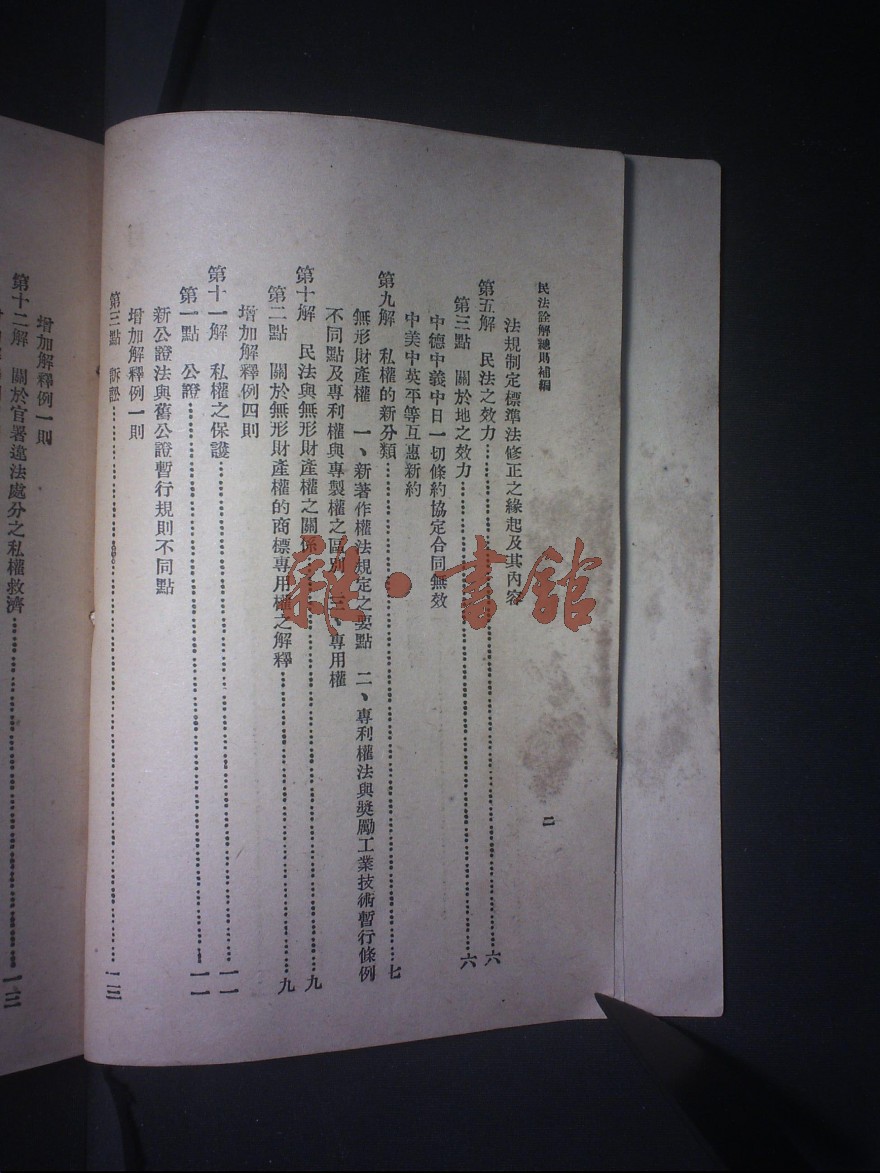 民法詮解總則補編
二
法規制定標準法修正之緣起及其內容
第五解　民法之效力……六
第三點　關於地之效力……六
中德中義中日一切條約協定合同無效
中美中英平等互惠新約
第九解　私權的新分類……七
無形財產權　一、新著作權法規定之要點　二、專利權法與奬勵工業技術暫行條例
不同點及專利權與專製權之區別　三、專用權
第十解　民法與無形財產權之關係……九
第二點　關於無形財產權的商標專用權之解釋……九
增加解釋例四則
第十一解　私權之保護……一一
第一點　公證……一一
新公證法與舊公證暫行規則不同點
增加解釋例一則
第三點　訴訟……一三
增加解釋例一則
第十二解　關於官署違法處分之私權救濟……一三
雜·書館